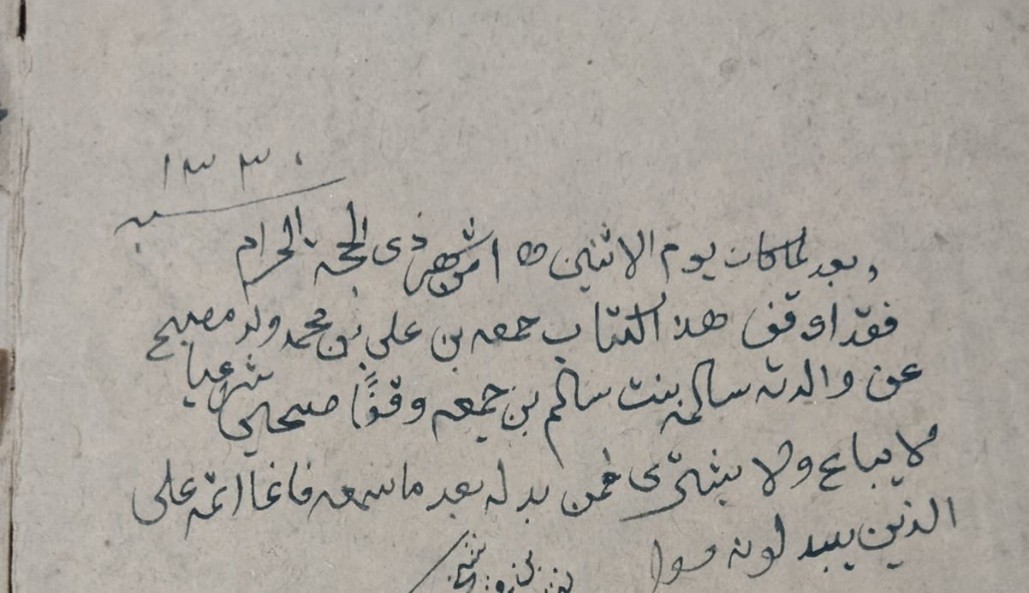 ١٣٣٠
سنه
وبعد لما كان يوم الاثنين ١٥ من شهر ذى الحجة الحرام
فقد اوقف هذ الكتاب جمعه بن علي بن محمد ولد مصبح
عن والدته سالمه بنت سالم بن جمعه وقفًا صحيحا شرعيا
لا يباع ولا يشترى فمن بدله بعد ما سمعه فانما اثمه على
الذين يبدلونه